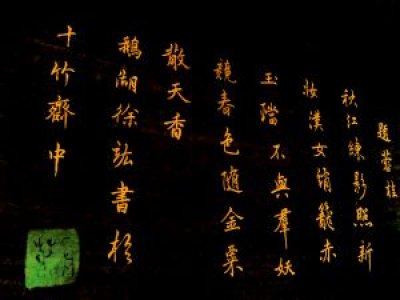 題桂
秋紅練影照新
妝漢女綃籠赤
玉璫不與羣妖
競春色隨金粟
散天香
鵝湖徐竑書於
十竹齋中